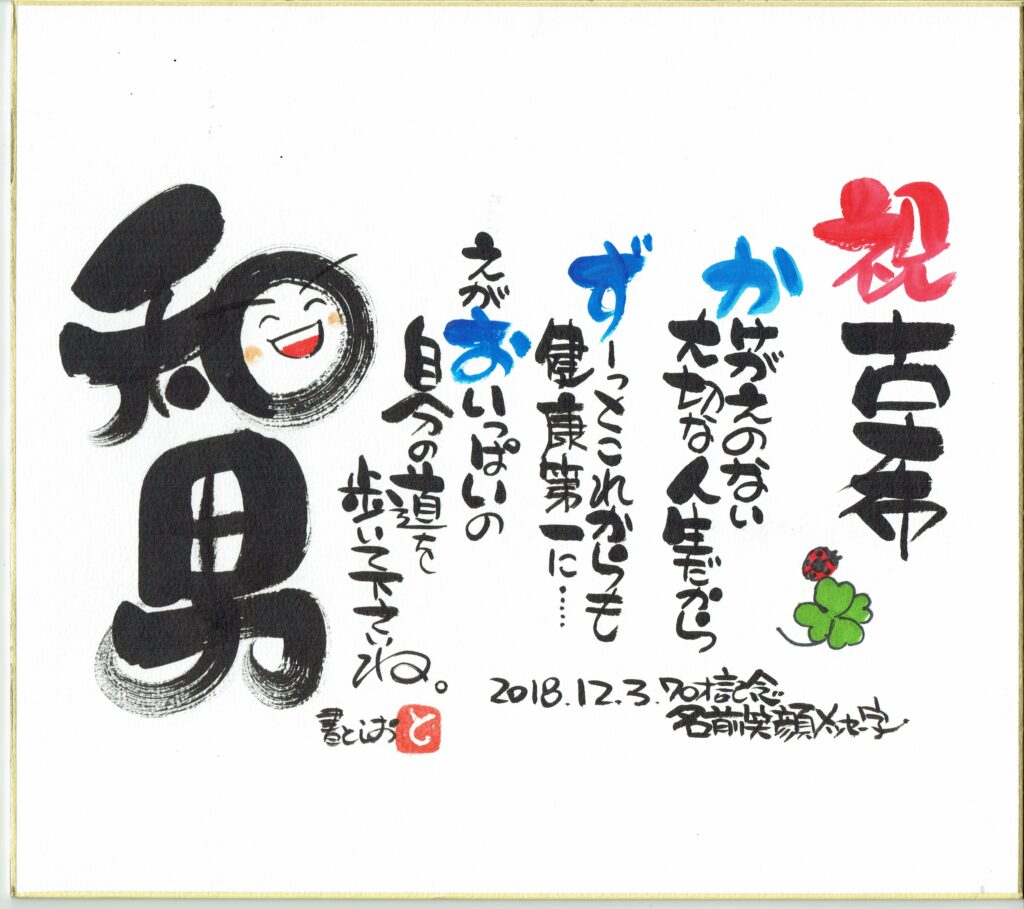 祝古希
かけがえのない
大切な人生だから
ずーっとこれからも
健康第一に……
えがおいっぱいの
自分の道を
歩いて下さいね。
和男
2018.12.3.70才記念
名前笑顔メッセー字
書としお
と